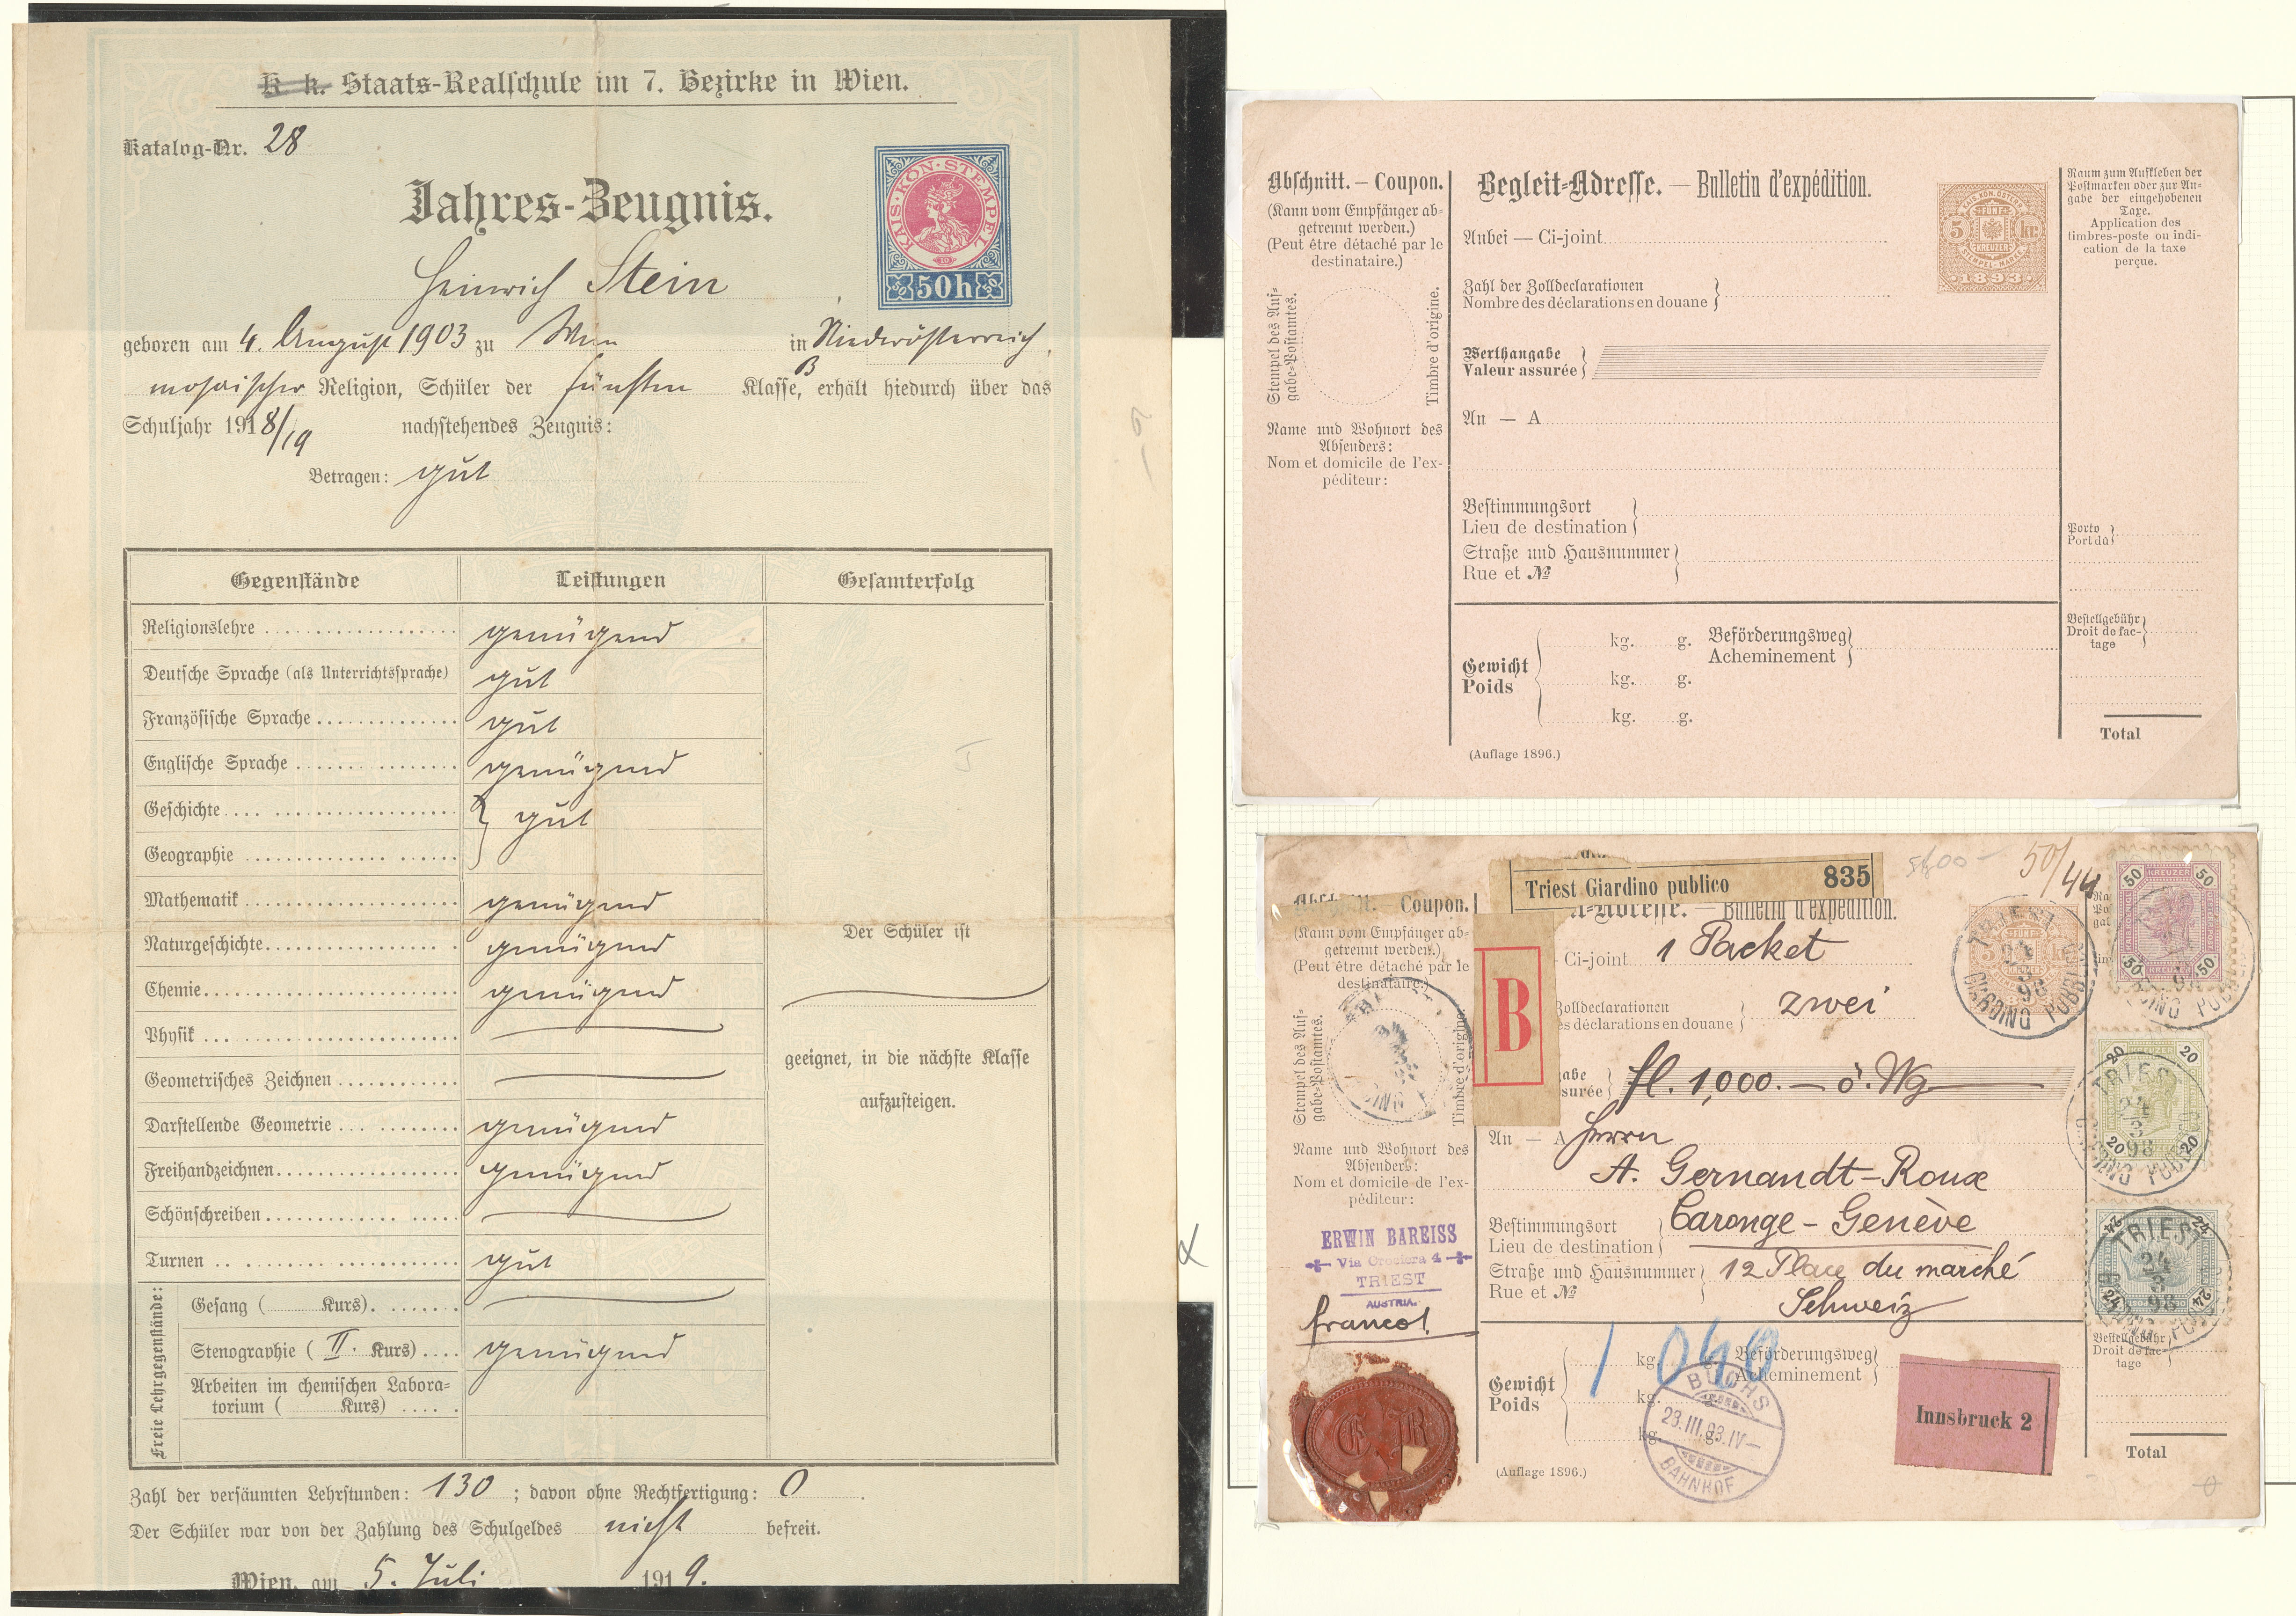 K. k. Staats-Realschule im 7. Bezirke in Wien.
Katalog-Nr. 28
Jahres-Zeugnis.
KAIS·KÖN·STEMPEL
50 50h 50
Heinrich Stein
geboren am 4. August 1903 zu Wien in Niederösterreich,
mosaischer Religion, Schüler der fünften Klasse, B erhält hiedurch über das
Schuljahr 1918/19 nachstehendes Zeugnis:
Betragen: gut
Gegenstände Leistungen Gesamterfolg
Religionslehre genügend
Deutsche Sprache (als Unterrichtssprache) gut
Französische Sprache gut
Englische Sprache genügend
Geschichte
Geographie } gut
Mathematik genügend
Naturgeschichte genügend
Chemie genügend
Physik
Geometrisches Zeichnen
Darstellende Geometrie genügend
Freihandzeichnen genügend
Schönschreiben
Turnen gut
Der Schüler ist
geeignet, in die nächste Klasse
aufzusteigen.
Freie Lehrgegenstände:
Gesang ( Kurs)
Stenographie ( II. Kurs) genügend
Arbeiten im chemischen Labora=
torium ( Kurs)
Zahl der versäumten Lehrstunden: 130 ; davon ohne Rechtfertigung: 0 .
Der Schüler war von der Zahlung des Schulgeldes nicht befreit.
Wien, am 5. Juli 1919.
Abschnitt. — Coupon.
(Kann vom Empfänger ab=
getrennt werden.)
(Peut être détaché par le
destinataire.)
Stempel des Auf=
gabe=Postamtes.
Timbre d'origine.
Name und Wohnort des
Absenders:
Nom et domicile de l'ex-
péditeur:
Begleit=Adresse. — Bulletin d'expédition.
Anbei — Ci-joint
Zahl der Zolldeclarationen
Nombre des déclarations en douane }
Werthangabe
Valeur assurée }
An — A
Bestimmungsort
Lieu de destination }
Straße und Hausnummer
Rue et № }
Gewicht
Poids
kg. g.
kg. g.
kg. g.
Beförderungsweg
Acheminement }
(Auflage 1896.)
5 FÜNF kr.
KREUZER
STEMPEL-MARKE
1893
Raum zum Aufkleben der
Postmarken oder zur An=
gabe der eingehobenen
Taxe.
Application des
timbres-poste ou indi-
cation de la taxe
perçue.
Porto
Port dû }
Bestellgebühr
Droit de fac-
tage }
Total
Triest Giardino publico 835
50/44
Coupon.
(Kann vom Empfänger ab=
getrennt werden.)
(Peut être détaché par le
destinataire.)
Stempel des Auf=
gabe=Postamtes.
Timbre d'origine.
Name und Wohnort des
Absenders:
Nom et domicile de l'ex-
péditeur:
ERWIN BAREISS
Via Crociera 4
TRIEST
AUSTRIA.
franco!
E B
B
Bulletin d'expédition.
Ci-joint 1 Packet
Zolldeclarationen
es déclarations en douane } zwei
abe
surée } fl. 1,000.— ö. Wg
An — A Herrn
A. Gernandt-Roux
Bestimmungsort
Lieu de destination } Caronge - Genève
Straße und Hausnummer
Rue et № } 12 Place du marché
Schweiz
Gewicht
Poids
kg.
kg.
kg.
1 040
Beförderungsweg
Acheminement }
BUCHS
23.III.98.IV—
BAHNHOF
Innsbruck 2
(Auflage 1896.)
50 KREUZER 50
50 KREUZER 50
TRIEST
24
3
98
GIARDINO PUBBLICO
20 20
20 20
TRIEST
24
3
98
24 24
24 24
TRIEST
24
3
98
Bestellgebühr
Droit de fac-
tage }
Total